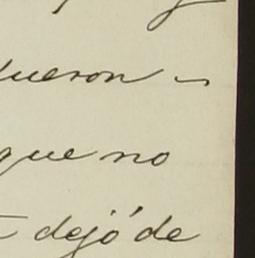 ueron -
que no
dejó de